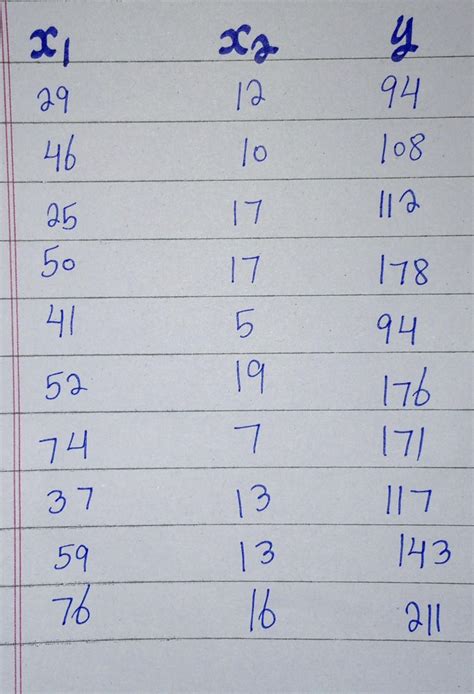 x₁ x₂ y
29 12 94
46 10 108
25 17 112
50 17 178
41 5 94
52 19 176
74 7 171
37 13 117
59 13 143
76 16 211